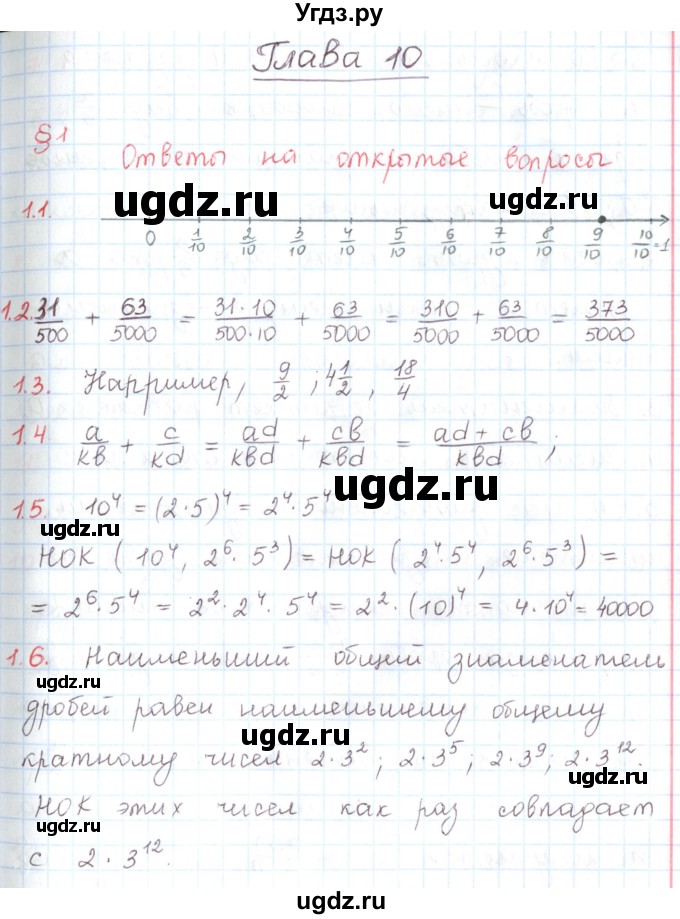 Угдз.ру
Глава 10
§1
Ответы на открытые вопросы
ugdz.ru ugdz.ru
1.1.
0 1/10 2/10 3/10 4/10 5/10 6/10 7/10 8/10 9/10 10/10=1
1.2. 31/500 + 63/5000 = 31·10/500·10 + 63/5000 = 310/5000 + 63/5000 = 373/5000
1.3. Напрример, 9/2 ; 4 1/2 , 18/4
1.4 a/кв + c/кd = ad/квd + cв/квd = ad + cв/квd ;
ugdz.ru
1.5. 10⁴ = (2·5)⁴ = 2⁴·5⁴
ugdz.ru
НОК ( 10⁴, 2⁶·5³) = НОК ( 2⁴·5⁴, 2⁶·5³) =
= 2⁶·5⁴ = 2²·2⁴·5⁴ = 2²·(10)⁴ = 4·10⁴ = 40000
1.6. Наименьший общий знаменатель
ugdz.ru
дробей равен наименьшему общему
ugdz.ru
кратному чисел 2·3²; 2·3⁵; 2·3⁹; 2·3¹².
ugdz.ru
НОК этих чисел как раз совпадает
с 2·3¹².
ugdz.ru
ugdz.ru